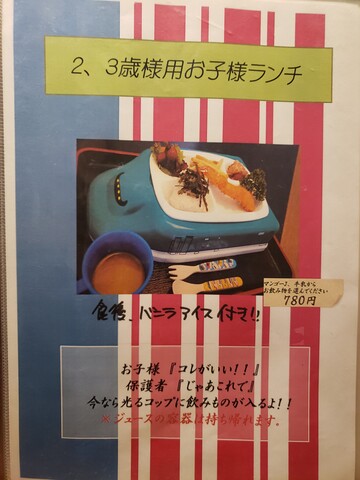 2、3歳様用お子様ランチ
マンゴーJ、牛乳から
お飲み物を選んでください
780円
食後、バニラアイス付き!!
お子様『コレがいい!!』
保護者『じゃあこれで』
今なら光るコップに飲みものが入るよ!!
×ジュースの容器は持ち帰れます。